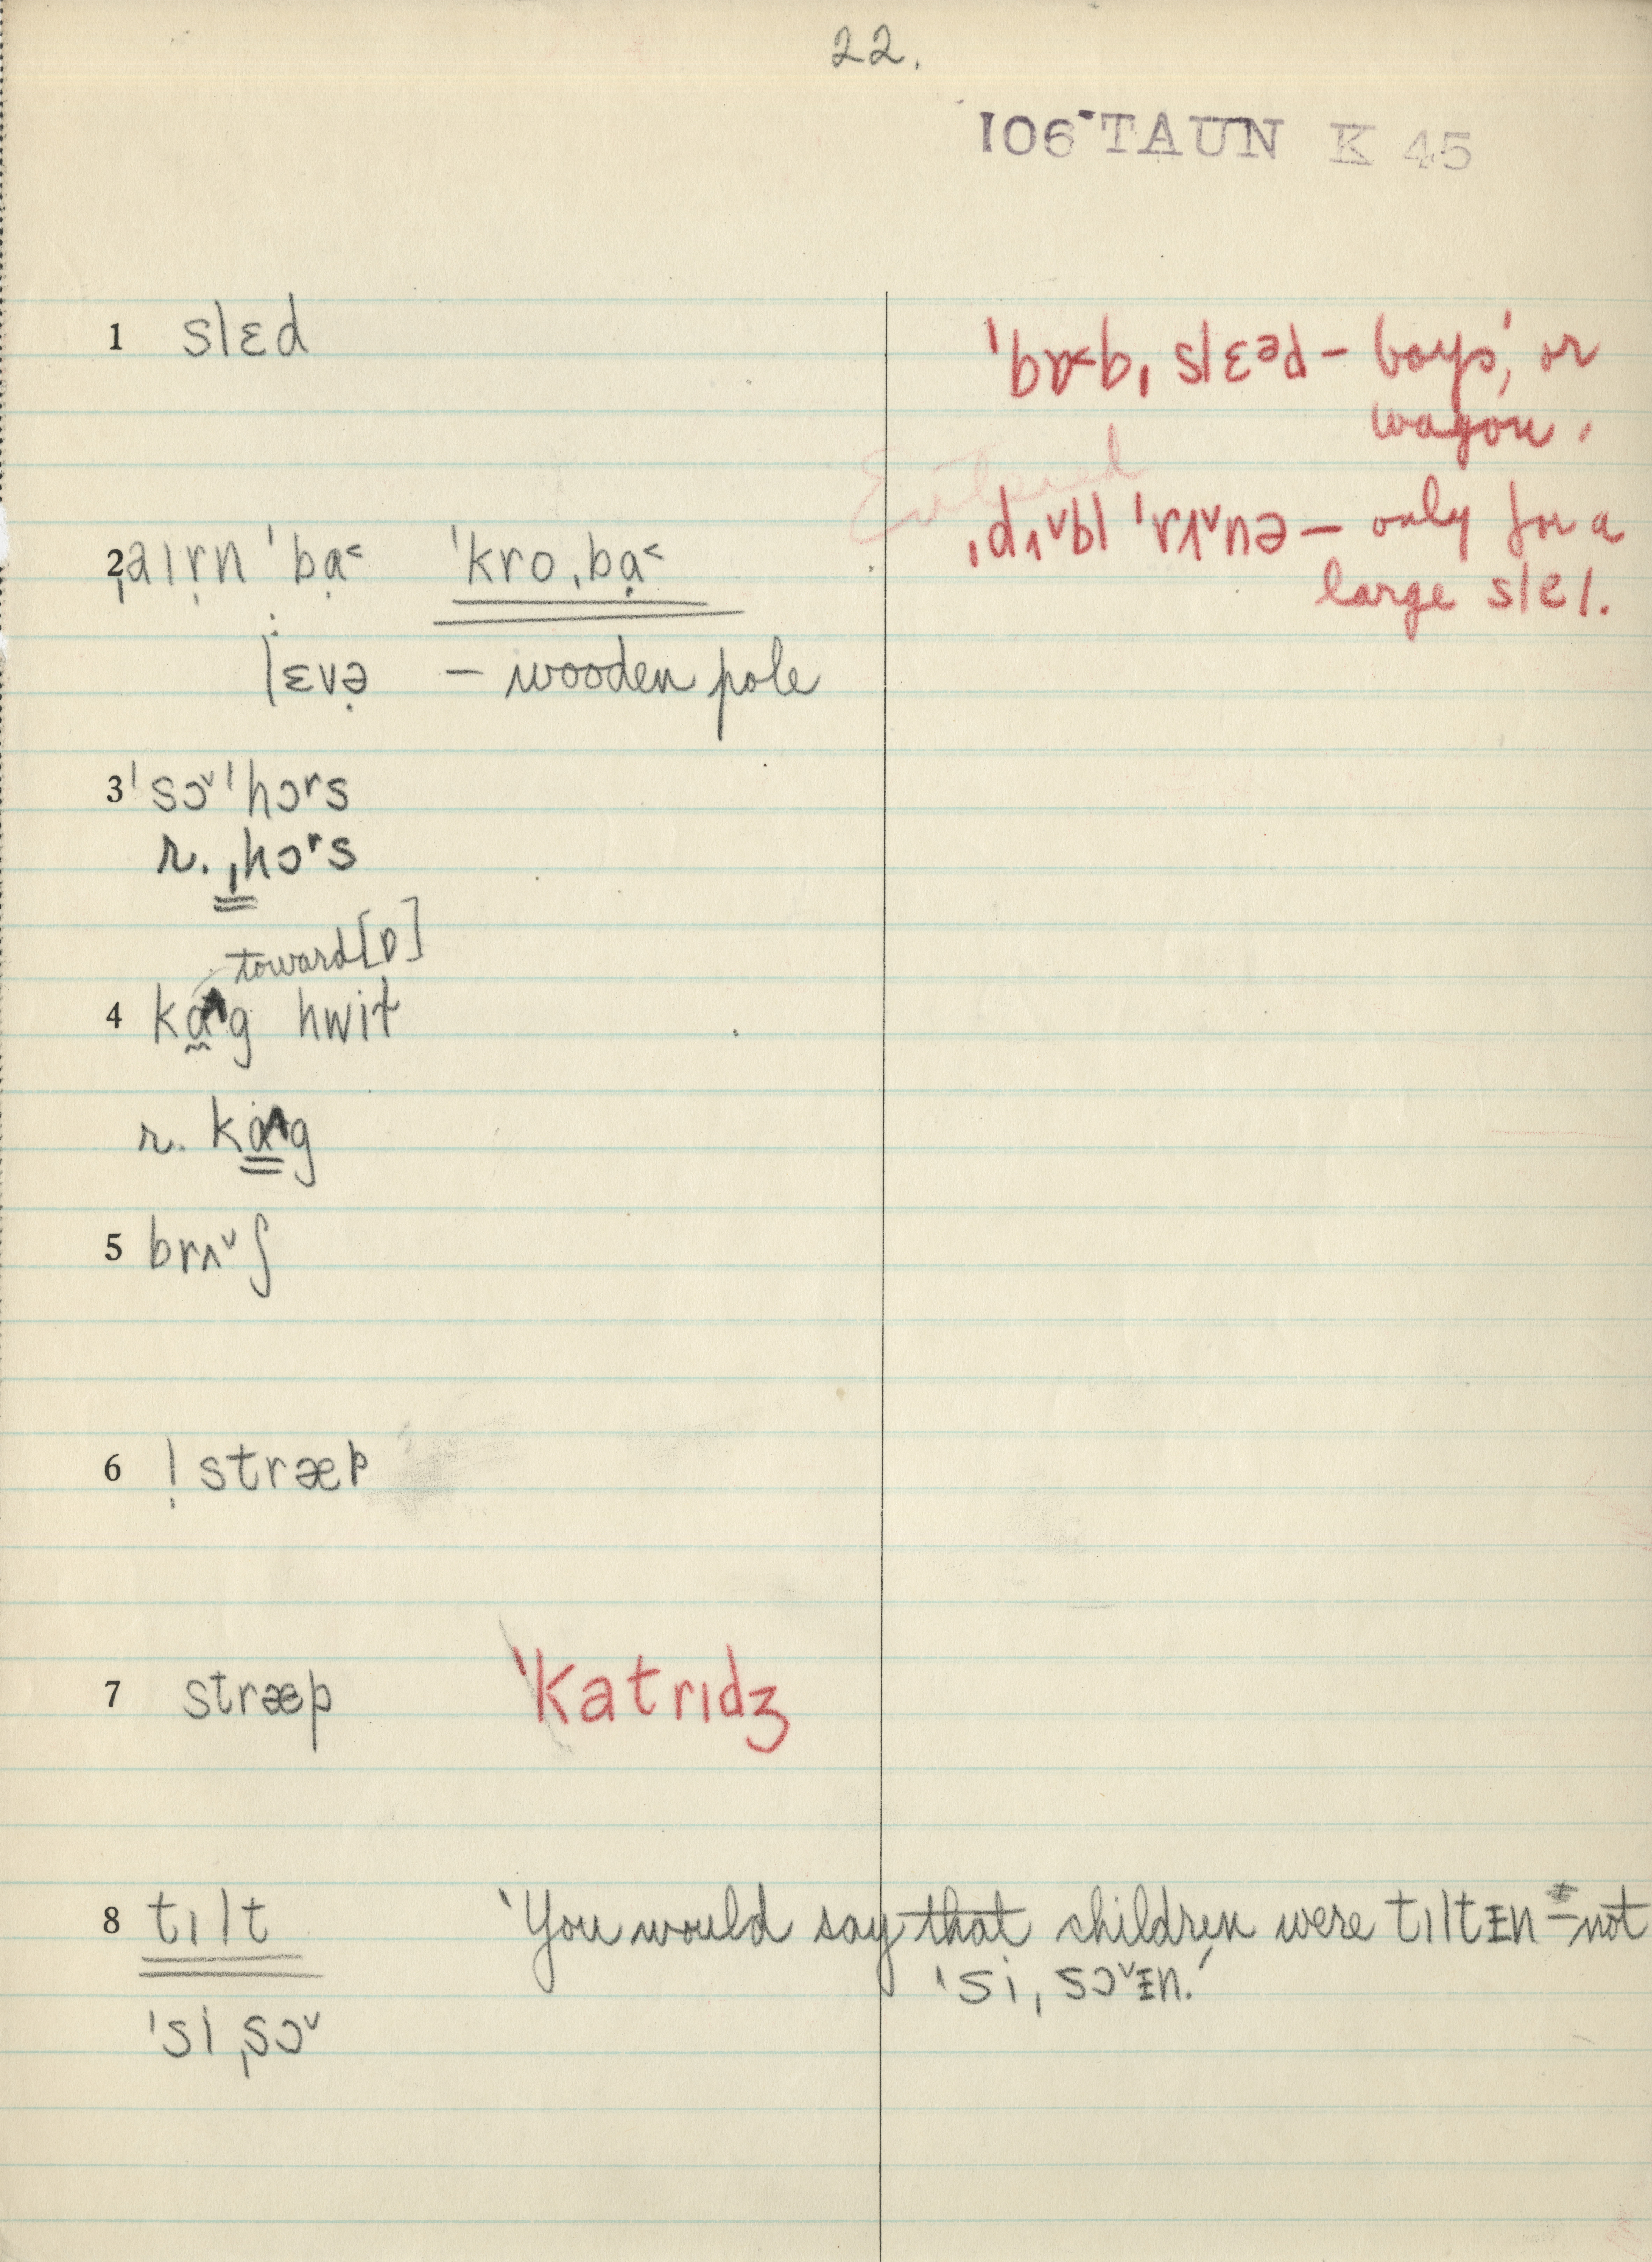 22.
106 TAUN K 45
1 slɛd
ˈbɒ˂bˌslɛᵊd – boys', or
wagon.
Entered
ˌdʌ˅bl ˈrʌ˅nə – only for a
large sleɪ.
2 ˌaɪṛn ˈbạ˂ ˈkroˌbạ˂
lɛvə̣ – wooden pole
3 ˈsɔ˅ˈhɔʳs
r. ˌhɔʳs
toward [ɒ]
4 kɑ^g hwit
r. kɑ^g
5 brʌ˅ʃ
6 ! stræp
7 stræp ˈkatrɪdʒ
8 tɪlt 'You would say that children were tɪltɪn – not
ˈsiˌsɔ˅ɪn.'
ˈsiˌsɔ˅